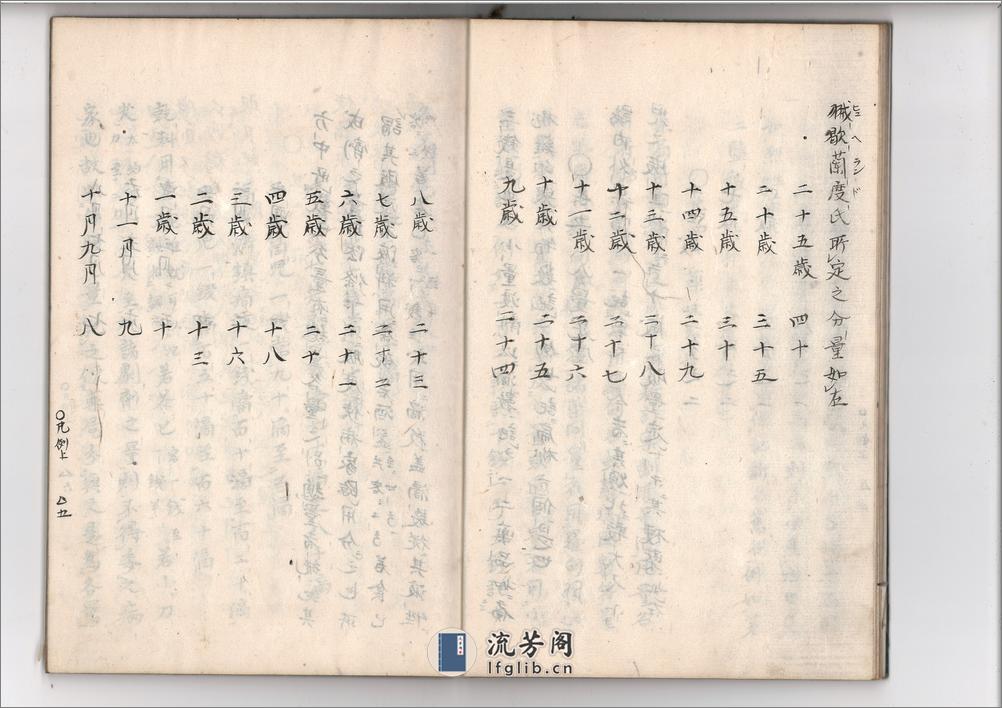 歇蘭度氏所定之分量如左
ヘーランド
二十五歳 四十
二十歳 三十五
十五歳 三十
十四歳 二十九
十三歳 二十八
十二歳 二十七
十一歳 二十六
十歳 二十五
九歳 二十四
八歳 二十三
七歳 二十二
六歳 二十一
五歳 二十
四歳 十八
三歳 十六
二歳 十三
一歳 十
十一月 九
十月九月 八
○凡例上
流芳阁
lfglib.cn